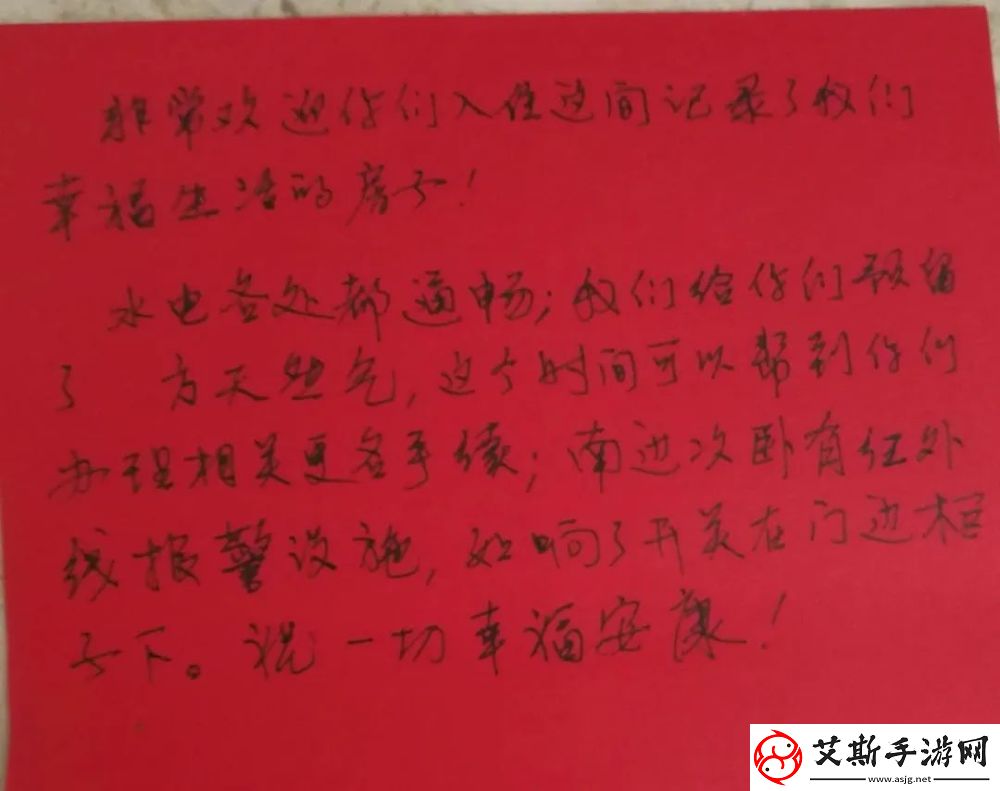 非常欢迎你们入住这间记录了我们
幸福生活的房子！
水电各处都通畅；我们给你们预留
了 方天然气，这个时间可以帮到你们
办理相关更名手续；南边次卧有红外
线报警设施，如响了开关在门边柜
子下。祝一切幸福安康！
艾斯手游网
www.asjg.net